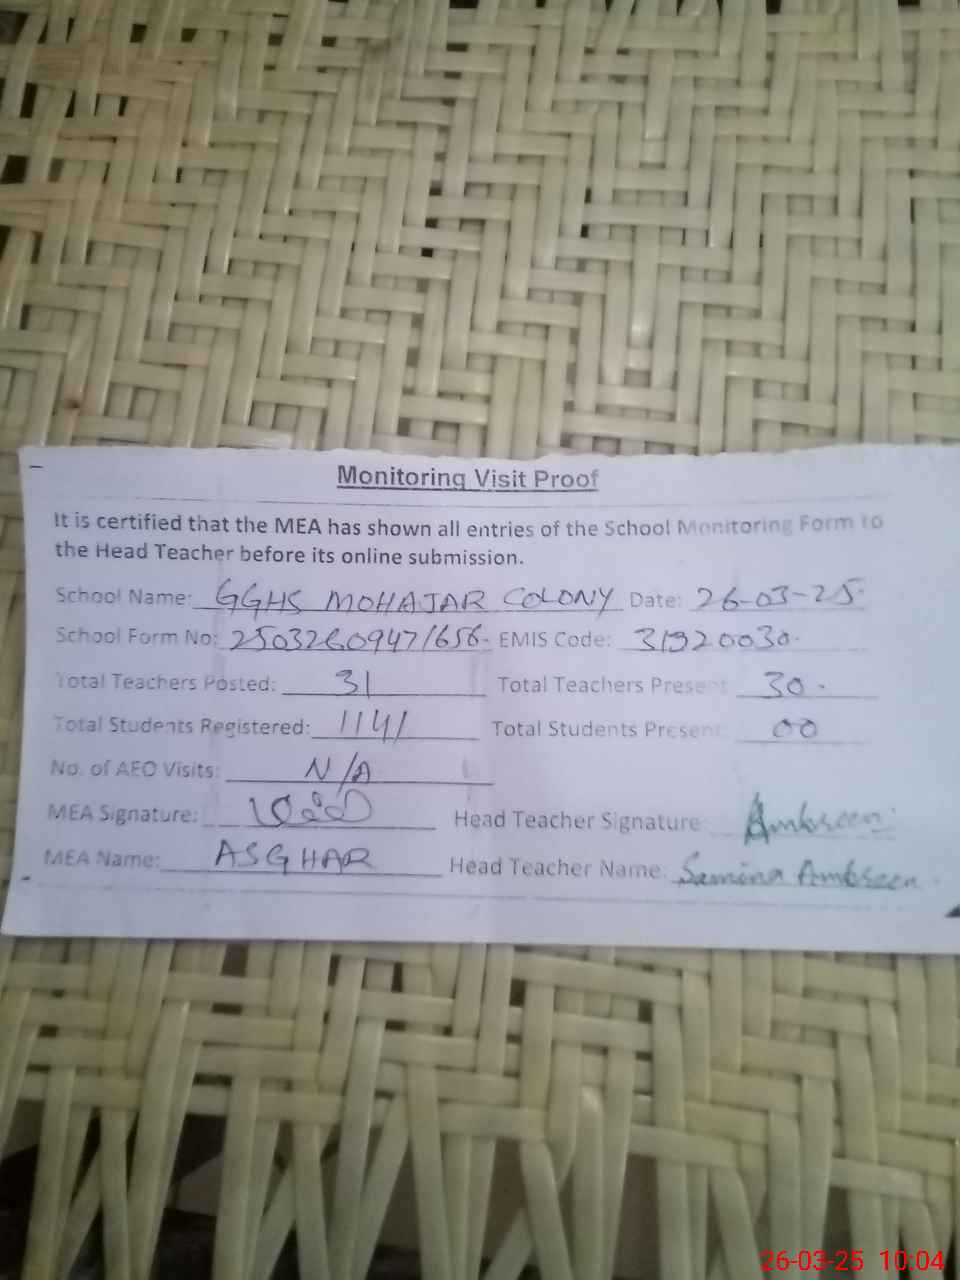 Monitoring Visit Proof
It is certified that the MEA has shown all entries of the School Monitoring Form to
the Head Teacher before its online submission.
School Name: GGHS MOHAJAR COLONY Date: 26-03-25
School Form No: 2503260947/656 EMIS Code: 31320030
Total Teachers Posted: 31 Total Teachers Present: 30
Total Students Registered: 1141 Total Students Present: 00
No. of AEO Visits: N/A
MEA Signature: Head Teacher Signature: Ambreen
MEA Name: ASGHAR Head Teacher Name: Samina Ambreen
26-03-25 10:04